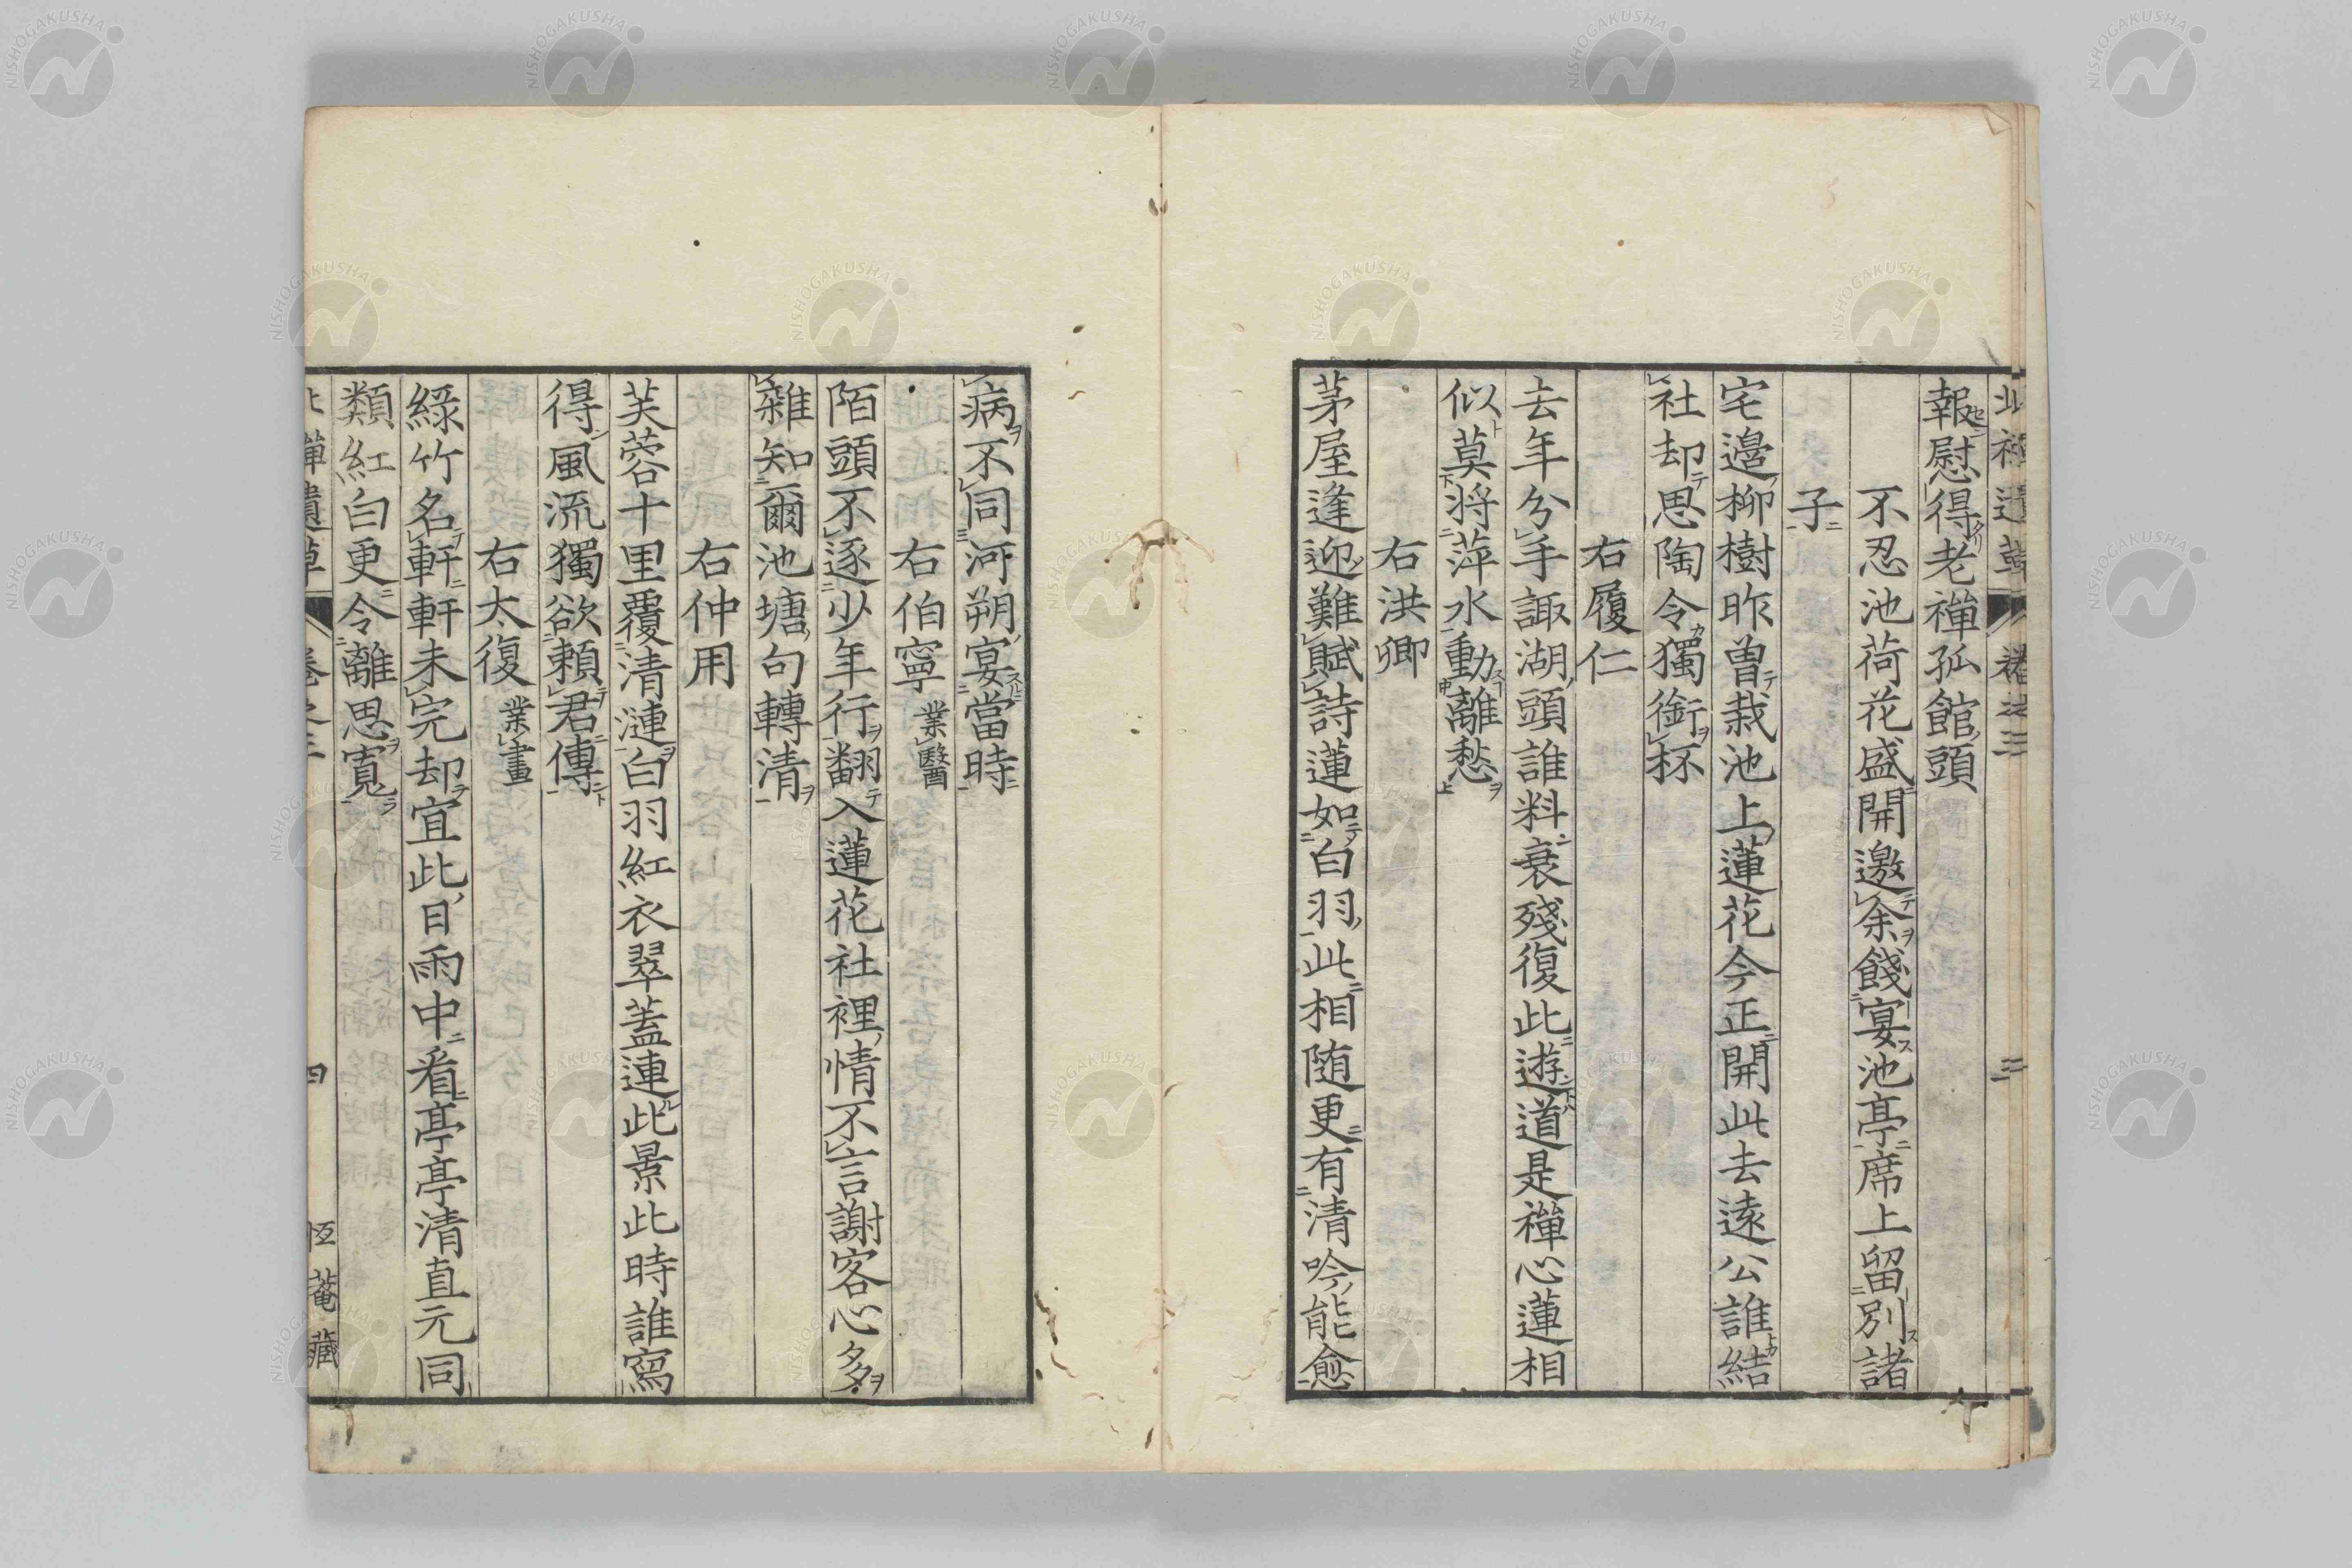 報慰得老禪孤館頭
不忍池荷花盛開邀余餞宴池亭席上留別諸
子
宅邊柳樹昨曾栽池上蓮花今正開此去遠公誰結
社却思陶令獨銜杯
右履仁
去年分手諏湖頭誰料衰殘復此遊道是禪心蓮相
似莫將萍水動離愁
右洪卿
茅屋逢迎難賦詩蓮如白羽此相随更有清吟能愈
病不同河朔宴當時
右伯寧 業醫
陌頭不逐少年行翻入蓮花社裡情不言謝客心多
雜知爾池塘句轉清
右仲用
芙蓉十里覆清漣白羽紅衣翠蓋連此景此時誰寫
得風流獨欲頼君傳
右太復 業畫
綠竹名軒軒未完却宜此日雨中看亭亭清直元同
類紅白更令離思寬
四
恒菴藏
NISHOGAKUSHA